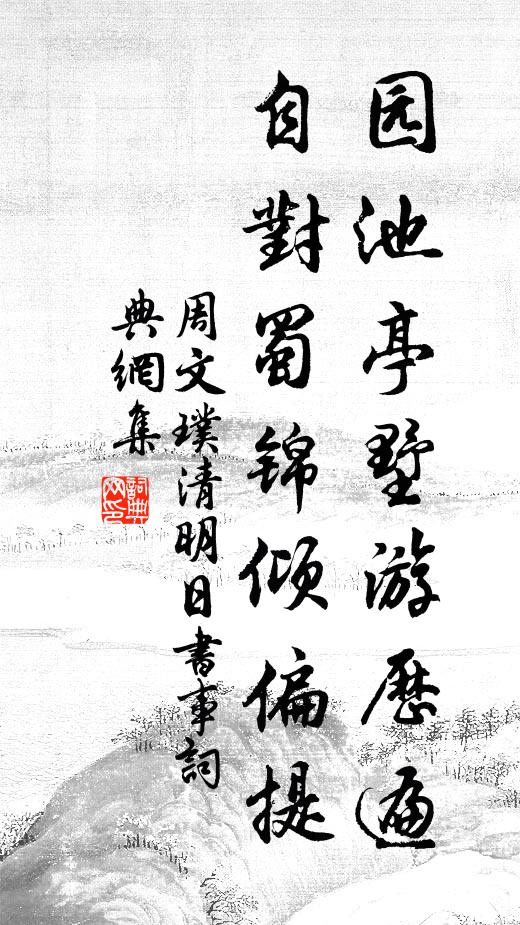 园池亭墅游历遍
自對蜀锦倾偏提
周文璞清明日書事詞
典網集
詞典网印